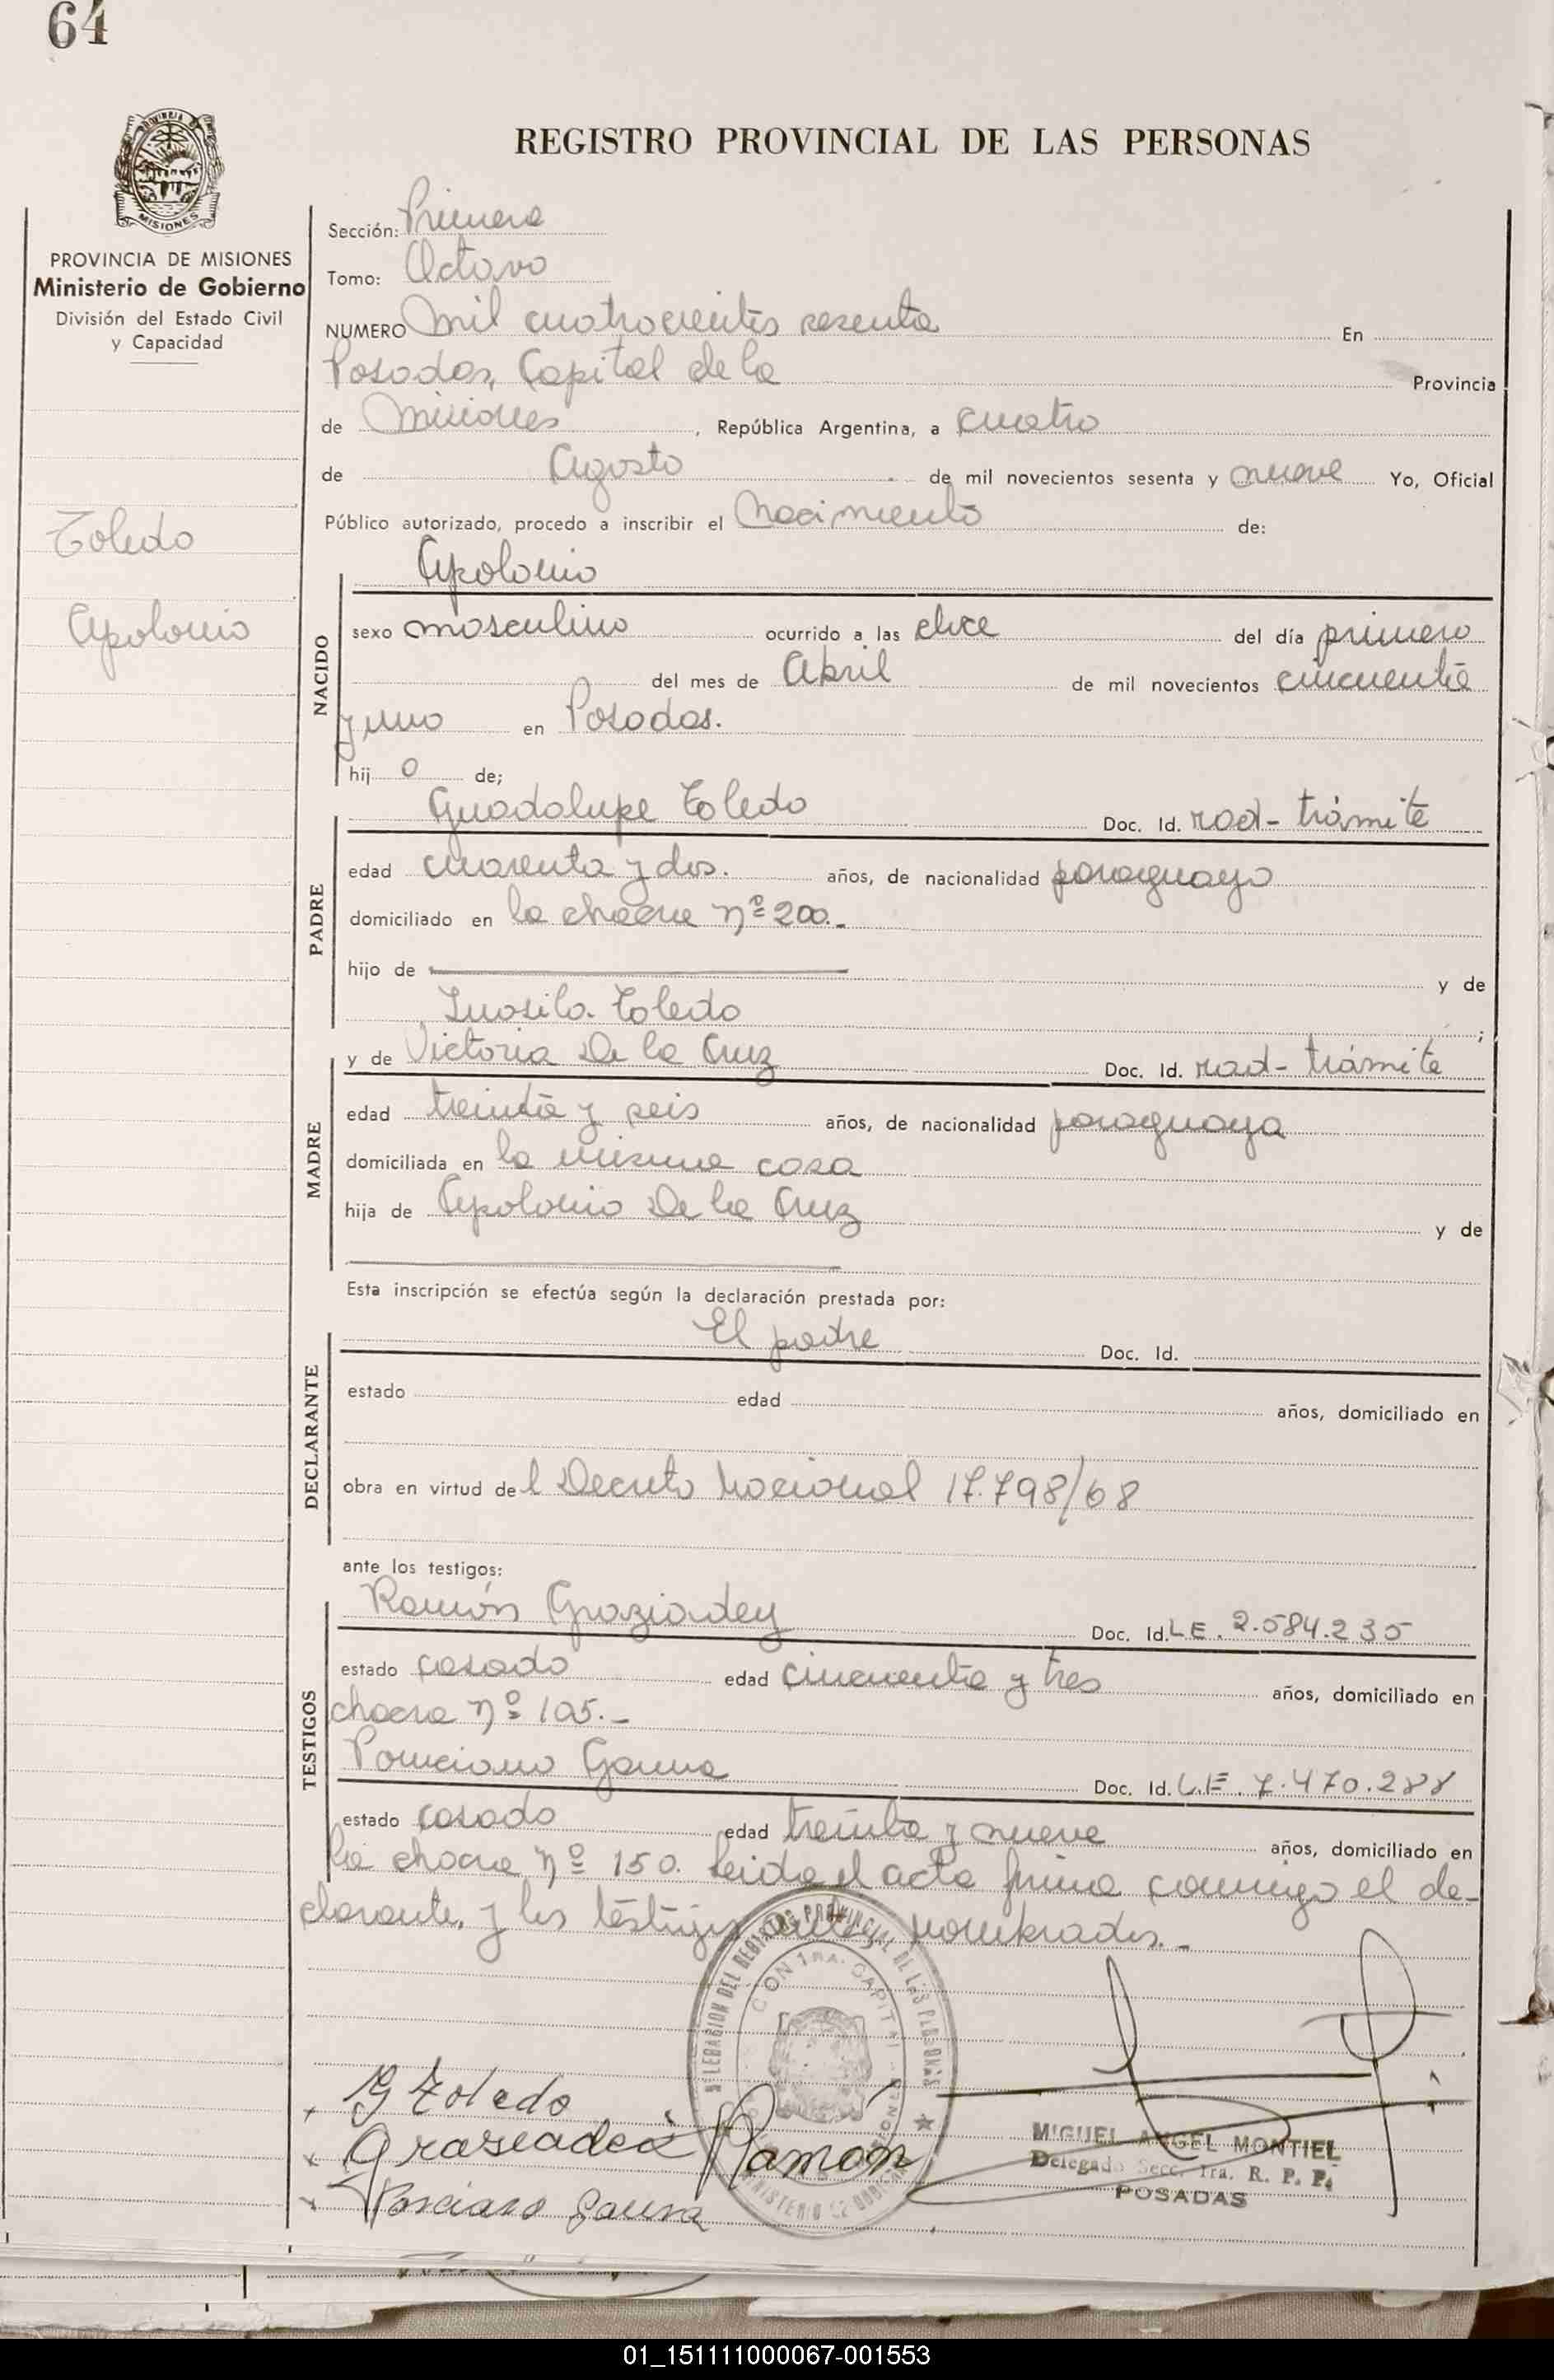 64
REGISTRO PROVINCIAL DE LAS PERSONAS
PROVINCIA DE MISIONES
Ministerio de Gobierno
División del Estado Civil
y Capacidad
Toledo
Apolonio
Sección: Primera
Tomo: Octavo
NUMERO Mil cuatrocientos sesenta En
Posadas, Capital de la Provincia
de Misiones, República Argentina, a cuatro
de Agosto de mil novecientos sesenta y nueve Yo, Oficial
Público autorizado, procedo a inscribir el Nacimiento de:
Apolonio
NACIDO
sexo masculino ocurrido a las doce del día primero
del mes de Abril de mil novecientos cincuenta
y uno en Posadas.
hijo de;
PADRE
Guadalupe Toledo Doc. Id. rad- trámite
edad cuarenta y dos. años, de nacionalidad paraguayo
domiciliado en la chacra nº 200.-
hijo de y de
Toledo ;
MADRE
y de Victoria De la Cruz Doc. Id. rad- trámite
edad treinta y seis años, de nacionalidad paraguaya
domiciliada en la misma casa
hija de Apolonio De la Cruz y de
Esta inscripción se efectúa según la declaración prestada por:
DECLARANTE
El padre Doc. Id.
estado edad años, domiciliado en
obra en virtud del Decreto Nacional 17.798/68
ante los testigos:
TESTIGOS
Ramón Graziadey Doc. Id. L E. 2.584.235
estado casado edad cincuenta y tres años, domiciliado en
chacra nº 105.-
Ponciano Gauna Doc. Id. L.E. 7.470.288
estado casado edad treinta y nueve años, domiciliado en
la chacra nº 150. Leida el acta firma conmigo el de-
clarante, y los testigos antes nombrados.-
DELEGACION DEL REGISTRO PROVINCIAL DE LAS PERSONAS
G Toledo
Ramón
Ponciano Gauna
MIGUEL ANGEL MONTIEL
Delegado Secc. 1ra. R. P. P.
POSADAS
01_151111000067-001553